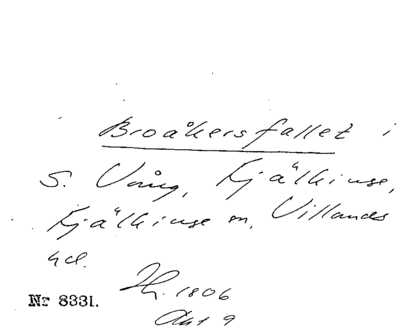 Broåkersfallet i
S. Vång, Fjälkinge,
Fjälkinge sn, Villands
hd.
Nr 8331.
1806
Akt 9